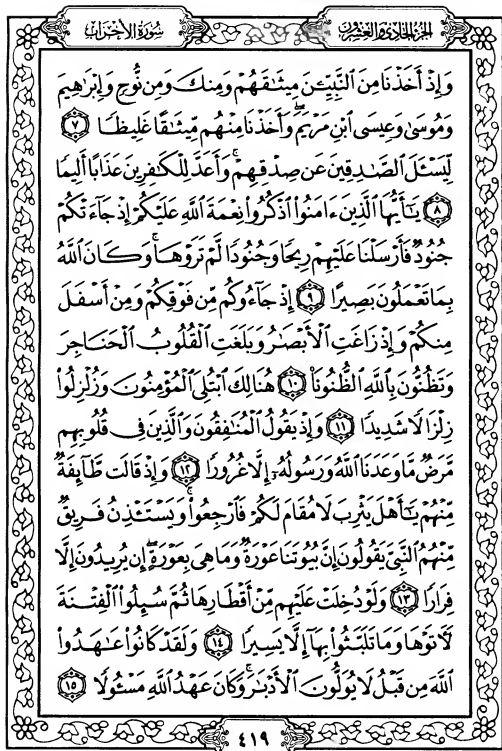 الجزء الحادي والعشرون
سورة الأحزاب
وَإِذْ أَخَذْنَا مِنَ ٱلنَّبِيِّـۧنَ مِيثَٰقَهُمْ وَمِنكَ وَمِن نُّوحٍ وَإِبْرَٰهِيمَ
وَمُوسَىٰ وَعِيسَى ٱبْنِ مَرْيَمَۖ وَأَخَذْنَا مِنْهُم مِّيثَٰقًا غَلِيظًا ٧
لِّيَسْـَٔلَ ٱلصَّٰدِقِينَ عَن صِدْقِهِمْۚ وَأَعَدَّ لِلْكَٰفِرِينَ عَذَابًا أَلِيمًا
٨ يَٰٓأَيُّهَا ٱلَّذِينَ ءَامَنُوا۟ ٱذْكُرُوا۟ نِعْمَةَ ٱللَّهِ عَلَيْكُمْ إِذْ جَآءَتْكُمْ
جُنُودٌ فَأَرْسَلْنَا عَلَيْهِمْ رِيحًا وَجُنُودًا لَّمْ تَرَوْهَاۚ وَكَانَ ٱللَّهُ
بِمَا تَعْمَلُونَ بَصِيرًا ٩ إِذْ جَآءُوكُم مِّن فَوْقِكُمْ وَمِنْ أَسْفَلَ
مِنكُمْ وَإِذْ زَاغَتِ ٱلْأَبْصَٰرُ وَبَلَغَتِ ٱلْقُلُوبُ ٱلْحَنَاجِرَ
وَتَظُنُّونَ بِٱللَّهِ ٱلظُّنُونَا۠ ١٠ هُنَالِكَ ٱبْتُلِىَ ٱلْمُؤْمِنُونَ وَزُلْزِلُوا۟
زِلْزَالًا شَدِيدًا ١١ وَإِذْ يَقُولُ ٱلْمُنَٰفِقُونَ وَٱلَّذِينَ فِى قُلُوبِهِم
مَّرَضٌ مَّا وَعَدَنَا ٱللَّهُ وَرَسُولُهُۥٓ إِلَّا غُرُورًا ١٢ وَإِذْ قَالَت طَّآئِفَةٌ
مِّنْهُمْ يَٰٓأَهْلَ يَثْرِبَ لَا مُقَامَ لَكُمْ فَٱرْجِعُوا۟ۚ وَيَسْتَـْٔذِنُ فَرِيقٌ
مِّنْهُمُ ٱلنَّبِىَّ يَقُولُونَ إِنَّ بُيُوتَنَا عَوْرَةٌ وَمَا هِىَ بِعَوْرَةٍۖ إِن يُرِيدُونَ إِلَّا
فِرَارًا ١٣ وَلَوْ دُخِلَتْ عَلَيْهِم مِّنْ أَقْطَارِهَا ثُمَّ سُئِلُوا۟ ٱلْفِتْنَةَ
لَـَٔاتَوْهَا وَمَا تَلَبَّثُوا۟ بِهَآ إِلَّا يَسِيرًا ١٤ وَلَقَدْ كَانُوا۟ عَٰهَدُوا۟
ٱللَّهَ مِن قَبْلُ لَا يُوَلُّونَ ٱلْأَدْبَٰرَۚ وَكَانَ عَهْدُ ٱللَّهِ مَسْـُٔولًا ١٥
٤١٩